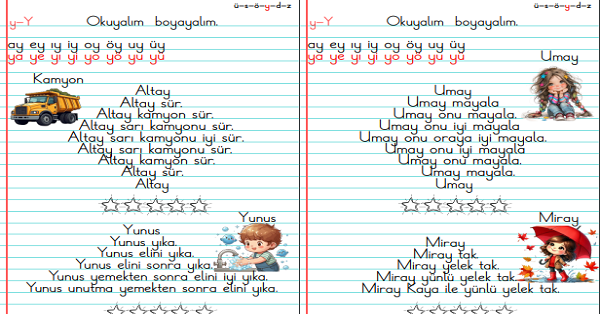 ü-s-ö-y-d-z
y-Y Okuyalım boyayalım.
ay ey ıy iy oy öy uy üy
ya ye yı yi yo yö yu yü
Kamyon
Altay
Altay sür.
Altay kamyon sür.
Altay sarı kamyonu sür.
Altay sarı kamyonu iyi sür.
Altay sarı kamyonu sür.
Altay kamyon sür.
Altay sür.
Altay
Yunus
Yunus
Yunus yıka.
Yunus elini yıka.
Yunus elini sonra yıka.
Yunus yemekten sonra elini iyi yıka.
Yunus unutma yemekten sonra elini yıka.
ü-s-ö-y-d-z
y-Y Okuyalım boyayalım.
ay ey ıy iy oy öy uy üy
ya ye yı yi yo yö yu yü
Umay
Umay
Umay mayala
Umay onu mayala.
Umay onu iyi mayala
Umay onu oraya iyi mayala.
Umay onu iyi mayala
Umay onu mayala.
Umay mayala.
Umay
Miray
Miray
Miray tak.
Miray yelek tak.
Miray yünlü yelek tak.
Miray Kaya ile yünlü yelek tak.